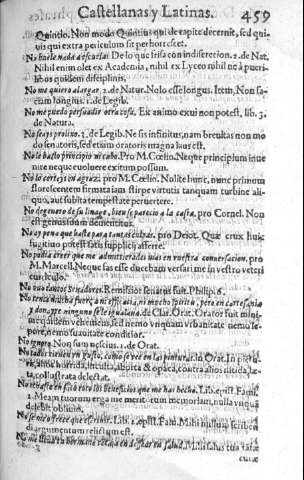 Castellanas y Latinas. 459
Quintio. Non modo Quintius qui de capite decernit, sed qui-
vis qui extra periculum sit perhorrescet.
No huele nada a escuelas. De lo que frisa con indiscrecion. 2. de Nat.
Nihil enim olet ex Academia, nihil ex Lyceo nihil ne à pueri-
libus quidem disciplinis.
No me quiero alargar. 2. de Natur. Nolo esse longus. Item, Non fa-
ciam longius. 1. de Legib.
No me puedo persuadir otra cosa. Ex animo exui non potest, lib. 3.
de Natura.
No seays prolixo. 3. de Legib. Ne sis infinitus, nam brevitas non mo
do senatoris, sed etiam oratoris magna laus est.
No le basto principio ni cabo. Pro M. Cœlio. Neque principium inue
nire neque evoluere exitum possum.
No le corteys en agraz. pro M. Cœlio. Nolite hunc, nunc primum
florescentem firmata iam stirpe virtutis tanquam turbine ali-
quo, aut subita tempestate peruertere.
No degenero de su linage, bien se parecio a la casta, pro Cornel. Non
est generis
No ay pena que baste para tantas culpas. pro Deiot. Quæ crux huic
fugitiuo potest satis supplicij afferre.
No podia creer que me admitieradas mas en vuestra conuersacion. pro
M. Marcell. Neque fas esse ducebam versari me in vestro veteri
curriculo.
No tuvo buenos Remisisse senatus fuit. Philip. 6.
No tenia mucha fuerça ni efficacia, ni mucho spiritu, pero en cortesania
y donayre ninguno se le igualaua. de Clar. Orat. Orator fuit mini-
me quidem vehemens, sed nemo vnquam vrbanitate nemo le-
pore, nemo suauitate conditior.
No ignoro. Non sum nescius. 1. de Orat.
No todos tienen un gusto, como se vee en las pinturas. ad Orat. In pictu-
ris, alios horrida, inculta, abdita & opaca, contra alios nitida, læ-
ta, collustrata delectat.
Lib. epist. Fam.
1. Meam tuorum erga me meritorum memoriam, nulla vnquam
delebit obliuio.
No se me ofrece que escreuir. Lib. epist. Fam. Mihi nullum scribendi
argumentum relictum est.